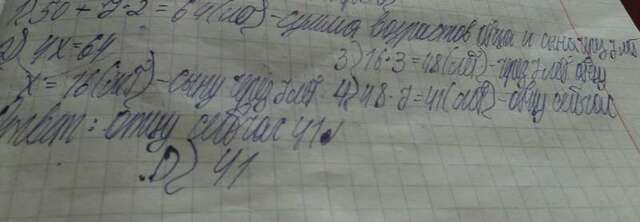 1) 50 + 7·2 = 64 (лет) - сумма возрастов отца и сына через 7 лет
2) 4x = 64
x = 16 (лет) - сыну через 7 лет
3) 16·3 = 48 (лет) - через 7 лет отцу
4) 48 - 7 = 41 (лет) - отцу сейчас
Ответ: отцу сейчас 41
D) 41